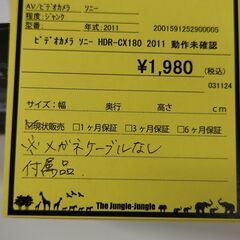 AV/ビデオカメラ ソニー
程度:ジャンク
型番: 年式:2011 2001591252900005
ビデオカメラ ソニー HDR-CX180 2011 動作未確認
¥1,980 (税込)
031124
サイズ:幅 奥行 高さ cm
☑現状販売 □1ヶ月保証 □3ヶ月保証 □6ヶ月保証
※メガネケーブルなし
付属品.
The Jungle-Jungle